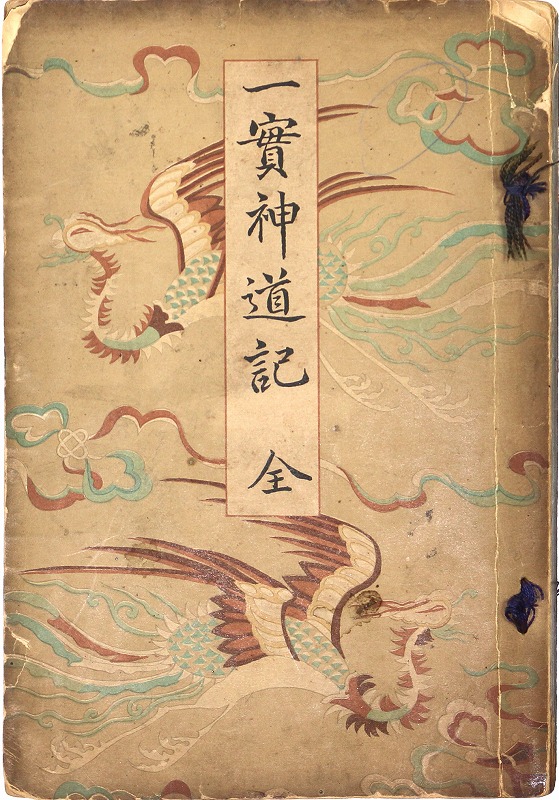 一實神道記 全